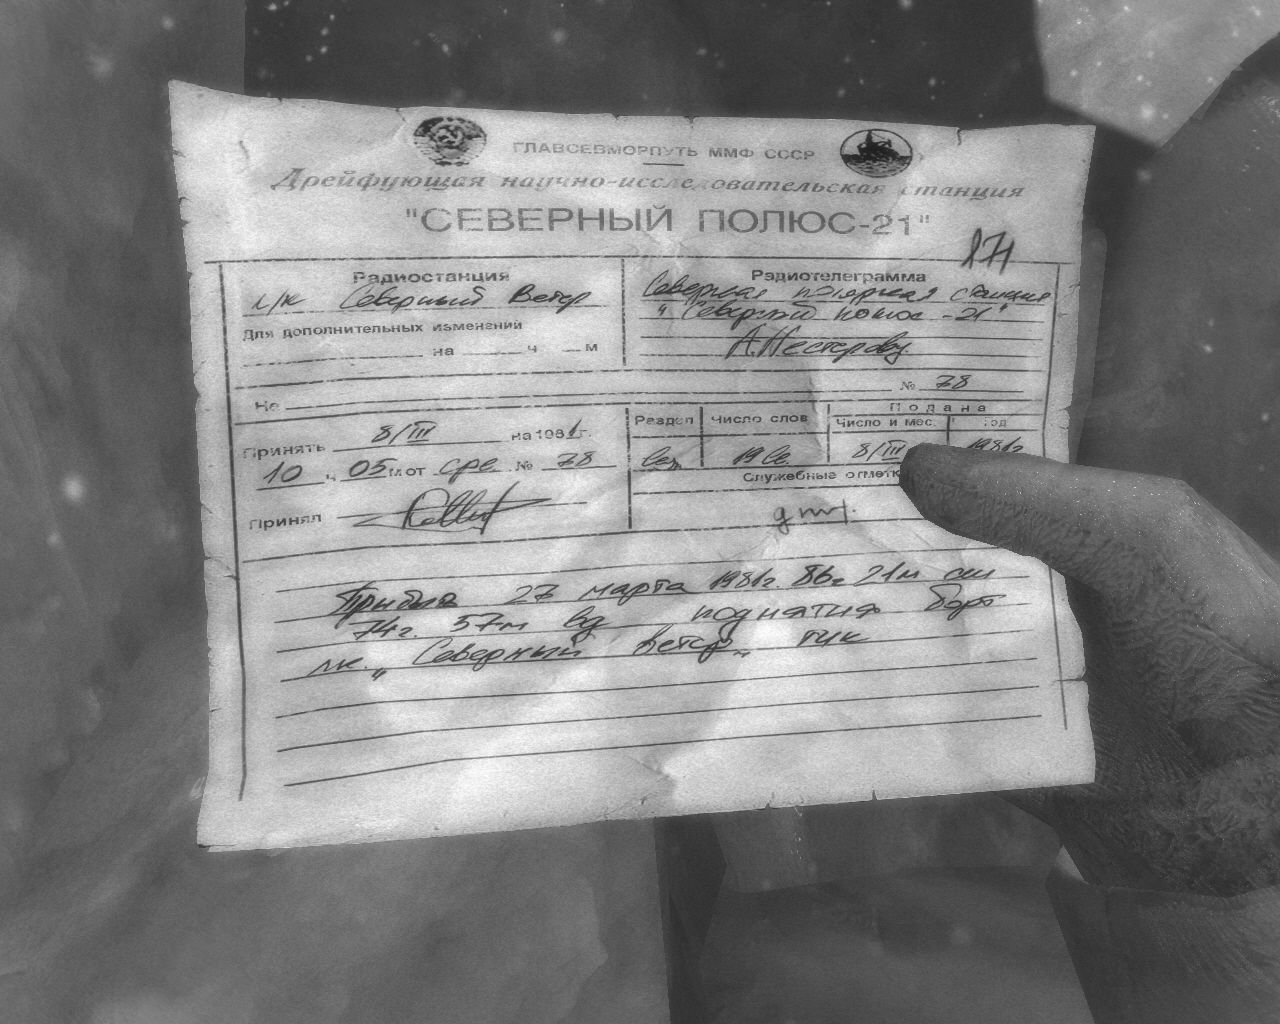 ГЛАВСЕВМОРПУТЬ ММФ СССР
Дрейфующая научно-исследовательская станция
"СЕВЕРНЫЙ ПОЛЮС-21"
871
Радиостанция
л/к Северный Ветер
Для дополнительных изменений
на ч м
Радиотелеграмма
Северная полярная станция
"Северный полюс-21"
А.Нестерову
№ 78
Но
Принять 8/III на 1981г.
10 ч 05 м от сре № 78
Принял
Раздел Число слов Подана
Число и мес. год
19 8/III 1981г
Служебные отметк
Прибыл 27 марта 1981г. 86г 21м сш
74г. 57м вд поднятия борт
лк. "Северный ветер" тчк